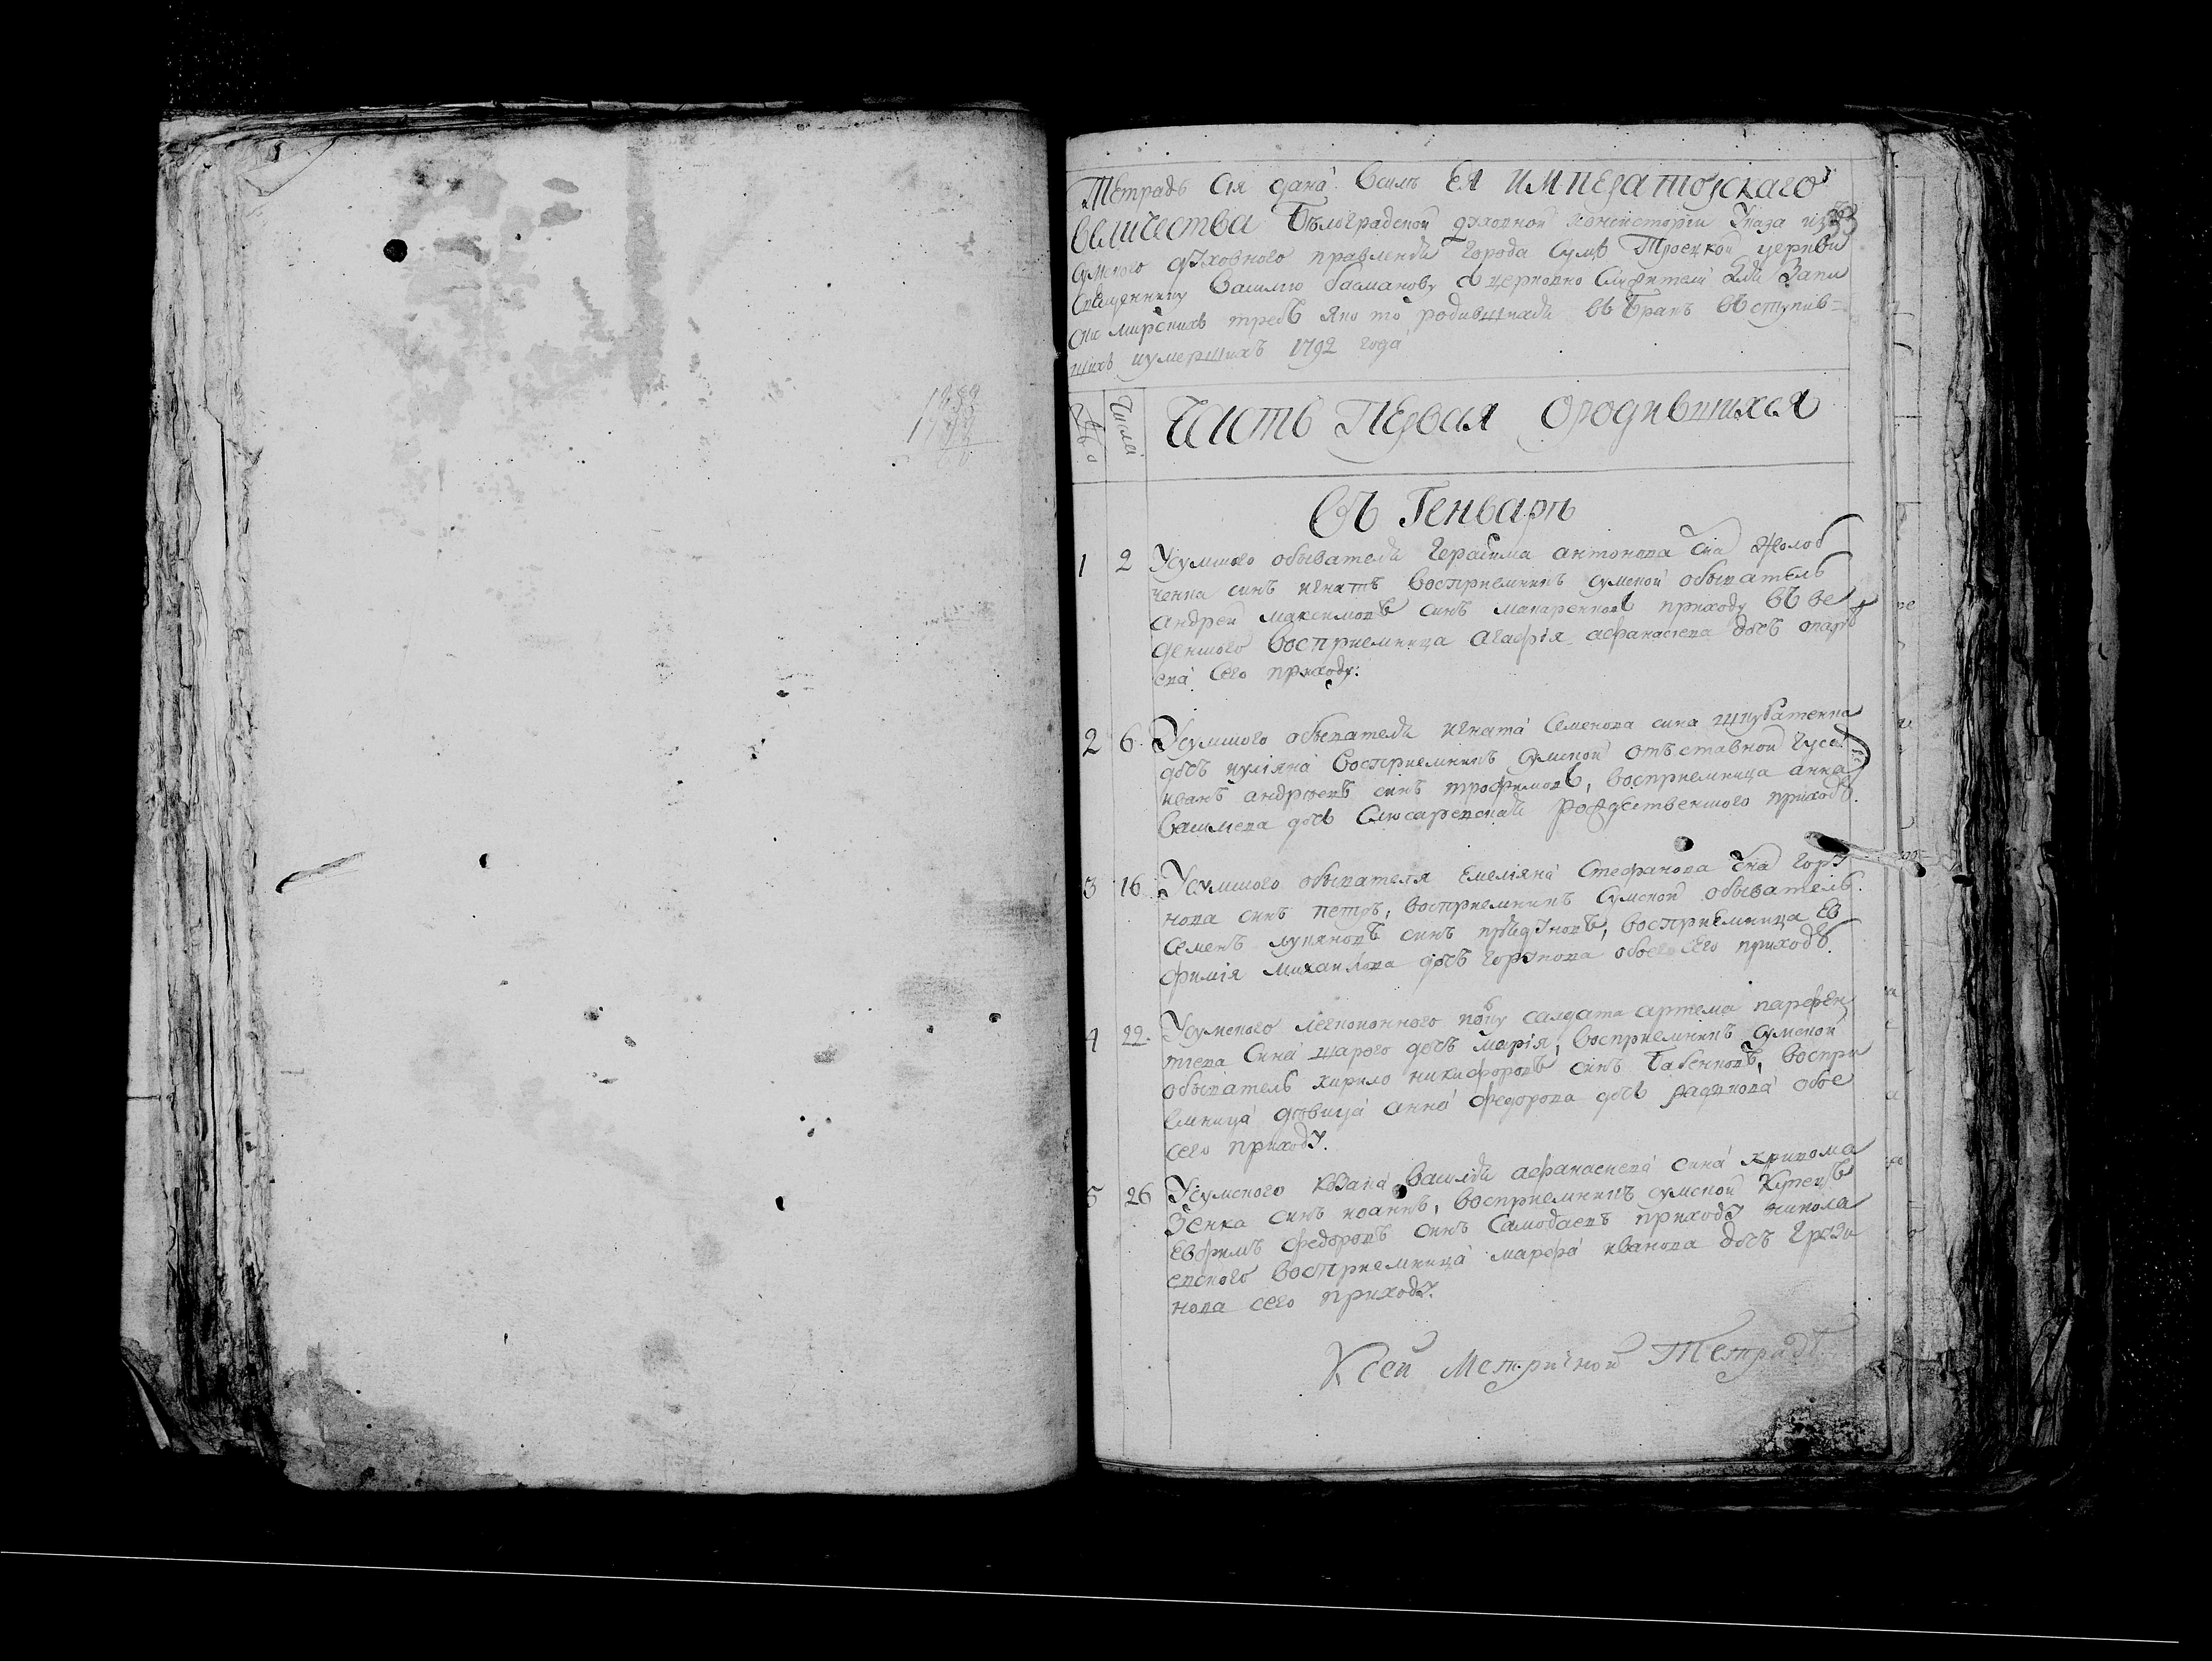 1789
Тетрадь сія дана всилъ ЕЯ ИМПЕРАТОРСКАГО
величества Бѣлоградской духовной Консисторіи Указа изъ
Сумского духовного правленія города Сумъ Троецкой церкви
Священнику Василію Басманову Сцерковно Служители для Запи
си мирскихъ требъ яко то родившихся въ Бракъ въступив=
шихъ иумершихъ 1792 года
Числа
Часть Первая Ородившихся
Въ Генварѣ
1 2 Усумского обывателя Герасима антонова сна Холод
ченка синъ игнатъ Восприемникъ сумской обыватель
андрей максимовъ синъ макаренковъ приходу въ ве
денского Восприемница агафія афанасіева дочь
ева сего приходу:
2 6. Усумского обывателя игната Семенова сина шкубатенка
дочь иуліяна Восприемникъ Сумской отъ ставной гусар
иванъ андреевъ синъ трофимовъ, восприемница анна
Василиева дочь Слюсаревская рождественского приходу.
3 16. Усумского обывателя Емеліяна Стефанова сна гору
нова синъ петръ, восприемникъ Сумской обыватель
Семенъ лукяновъ синъ восприемница Ев
фимія Михаилова дочь горунова обое сего приходу.
4 22. Усумского легкоконного полку салдата артема парфен
тіева Сина шарого дочь марія, восприемникъ сумской
обыватель кирило никифоровъ синъ Бабенковъ, воспри
емница дѣвица анна федорова дочь обое
сего приходу.
5 26 Усумского козака Василія афанасиева сина кривома
зенка синъ иоаннъ, восприемникъ сумской Купецъ
Евфимъ федоровъ синъ Самодаевъ приходу никола
евского восприемница марфа иванова дочь
нова сего приходу.
Ксей Метричной Тетрадѣ